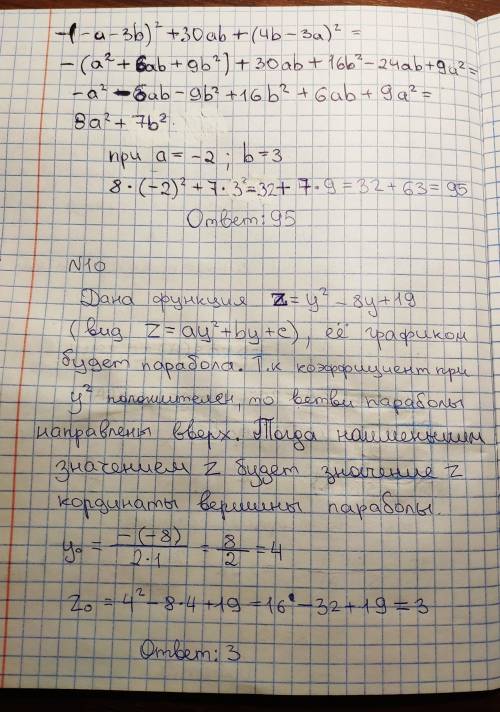 -(-a-3b)² +30ab + (4b-3a)² =
-(a² + 6ab + 9b²) + 30ab + 16b² - 24ab + 9a² =
-a² - 6ab - 9b² + 16b² + 6ab + 9a² =
8a² + 7b².
при a = -2 ; b = 3
8·(-2)² + 7·3² = 32 + 7·9 = 32 + 63 = 95
Ответ: 95
N10
Дана функция z = y² - 8y + 19
(вид z = ay² + by + c), её графиком
будет парабола. Т.к коэффициент при
y² положителен, то ветви параболы
направлены вверх. Тогда наименьшим
значением z будет значение z
кординаты вершины параболы.
y₀ = -(-8)/2·1 = 8/2 = 4
z₀ = 4² - 8·4 + 19 = 16 - 32 + 19 = 3
Ответ: 3